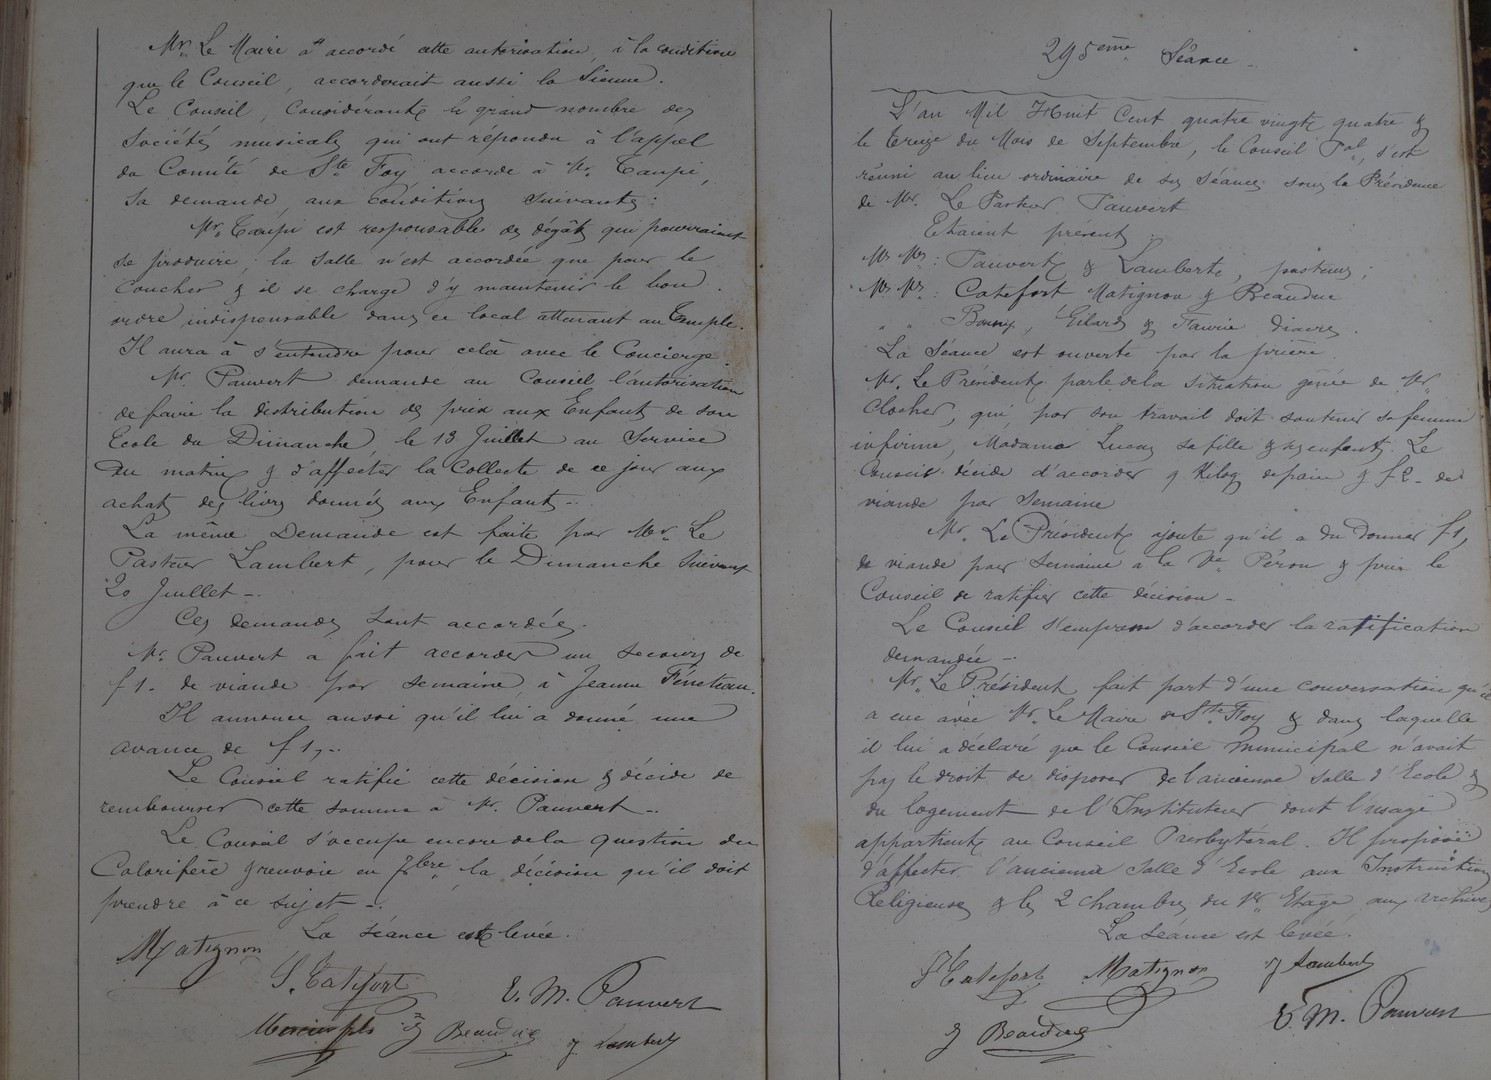 Mr. Le Maire a accordé cette autorisation, à la condition
que le Conseil, accorderait aussi la Sienne.
Le Conseil, Considérant le grand nombre des
Sociétés musicales qui ont répondu à l'appel
du Comité de Ste Foy accorde à Mr. Taupi,
sa demande, aux Conditions Suivantes:
Mr. Taupi est responsable des dégâts qui pourraient
se produire, la salle n'est accordée que pour le
Coucher & il se charge d'y maintenir le bon
ordre indispensable dans ce local attenant au Temple.
Il aura à s'entendre pour cela avec le Concierge.
Mr. Pauvert demande au Conseil l'autorisation
de faire la distribution des prix aux Enfants de son
Ecole du Dimanche, le 13 Juillet au Service
du matin & d'affecter la Collecte de ce jour aux
achats des livres donnés aux Enfants -.
La même Demande est faite par Mr. Le
Pasteur Lambert, pour le Dimanche Suivant
20 Juillet -.
Ces demandes sont accordées.
Mr. Pauvert a fait accorder un secours de
f 1. de viande par semaine, à Jeanne Féneteau.
Il annonce aussi qu'il lui a donné une
avance de f 1,..
Le Conseil ratifie cette décision & décide de
rembourser cette somme à Mr. Pauvert -.
Le Conseil s'occupe encore de la question du
Calorifère & renvoie en 7bre la décision qu'il doit
prendre à ce sujet -.
La séance est levée.
Matignon
Catefort
E. M. Pauvert
fils J Beaudue J Lambert
295ème Séance -
L'an Mil Huit Cent quatre vingt quatre &
le treize du Mois de Septembre, le Conseil Pal, s'est
réuni au lieu ordinaire de ses Séances sous la Présidence
de Mr. Le Pasteur Pauvert
Etaient présents:
Mr Mrs: Pauvert & Lambert, pasteurs;
Mr Mrs: Catefort Matignon & Beaudue
" " Bonny, Gilard & Faurie diacres.
La Séance est ouverte par la prière.
Mr. Le Président parle de la situation gênée de Mr
Clocher, qui, par son travail doit soutenir sa femme
infirme, Madame sa fille & ses enfants. Le
Conseil décide d'accorder 9 Kilos de pain & f 2 - de
viande par semaine
Mr. Le Président ajoute qu'il a du donner f 1,
de viande par semaine à la Ve Péron & prie le
Conseil de ratifier cette décision -
Le Conseil s'empresse d'accorder la ratification
demandée -.
Mr. Le Président fait part d'une conversation qu'il
a eue avec Mr. Le Maire de Ste Foy & dans laquelle
il lui a déclaré que le Conseil Municipal n'avait
pas le droit de disposer de l'ancienne Salle d'Ecole &
du logement de l'Instituteur dont l'usage
appartient au Conseil Presbytéral. Il propose
d'affecter l'ancienne Salle d'Ecole aux Instructions
Religieuses & les 2 chambres du 1er Etage aux archives
La séance est levée.
Catefort Matignon J Lambert
J Beaudue E. M. Pauvert